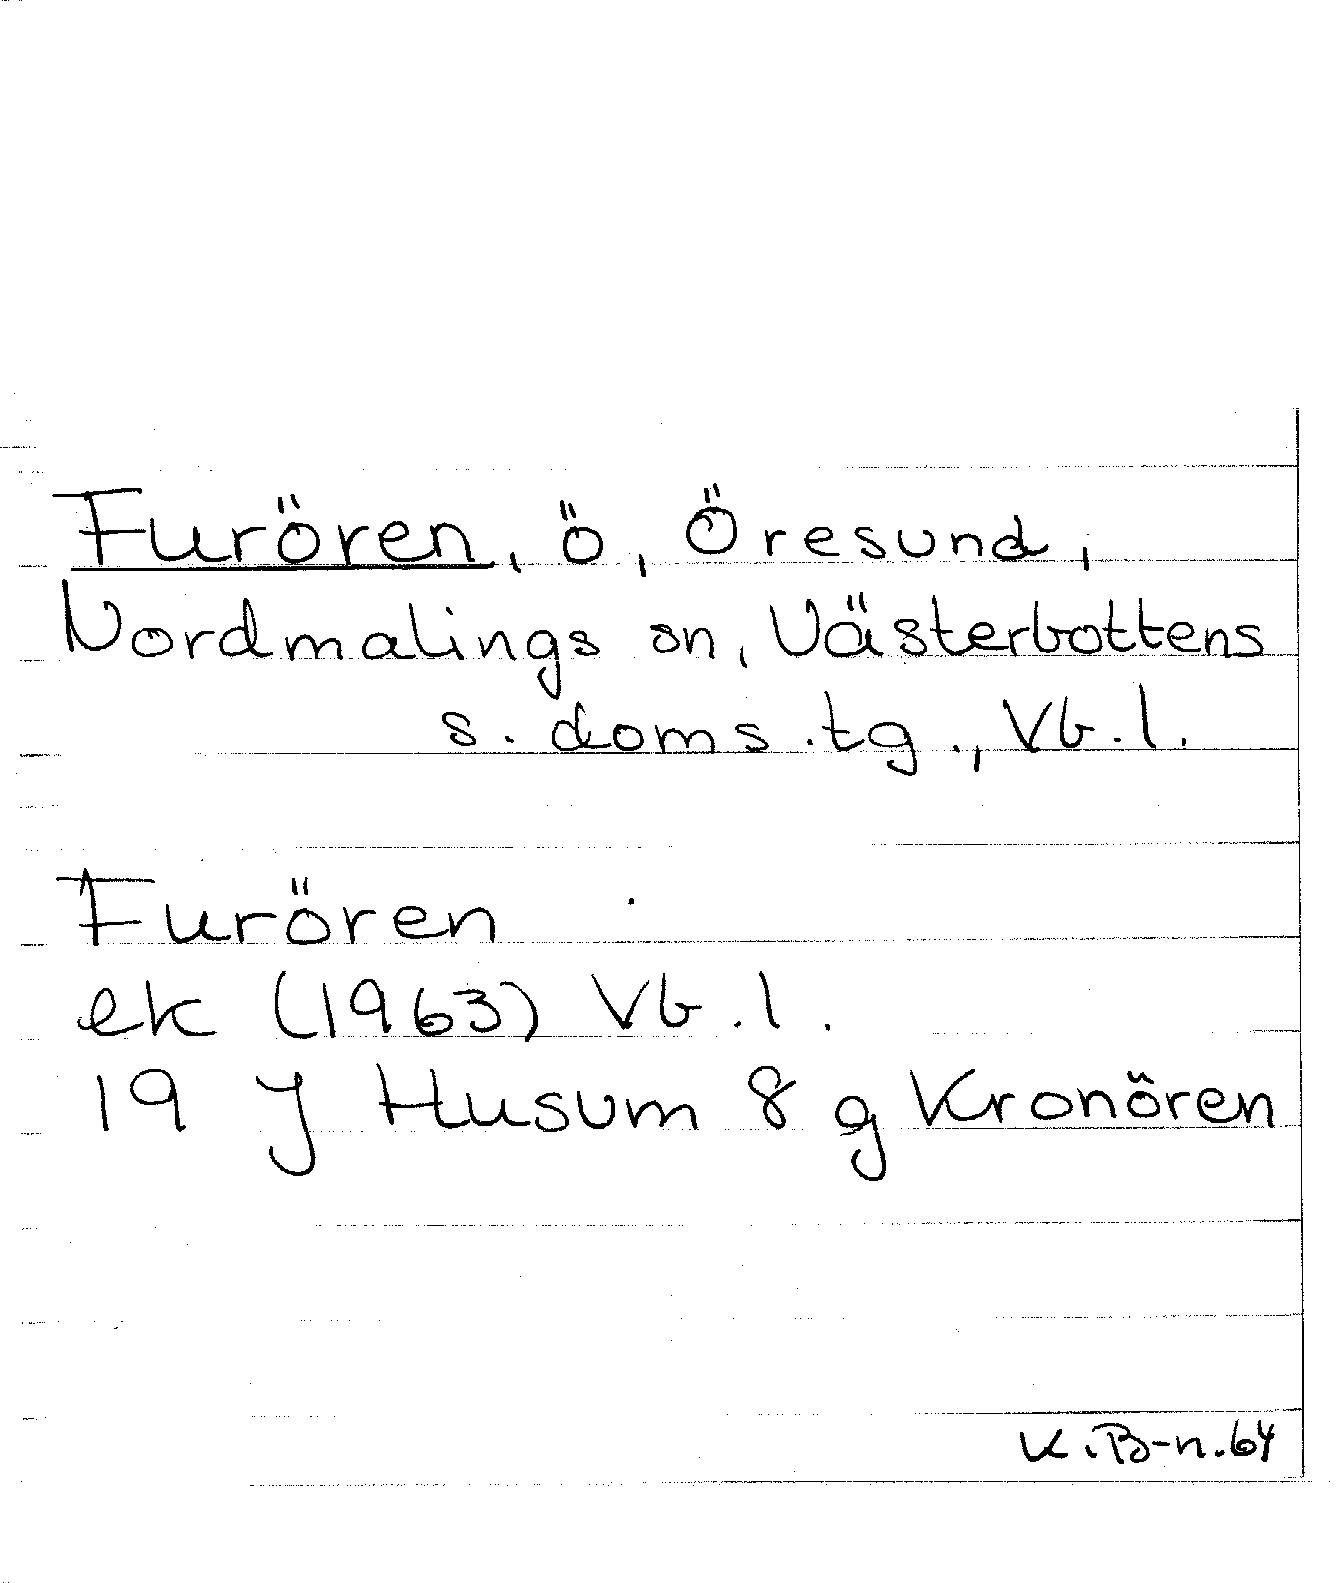 Furören, ö, Öresund,
Nordmalings sn, Västerbottens
s. doms.tg., Vb.l.
Furören
ek (1963) Vb.l.
19 J Husum 8 g Kronören
K.B-n.64